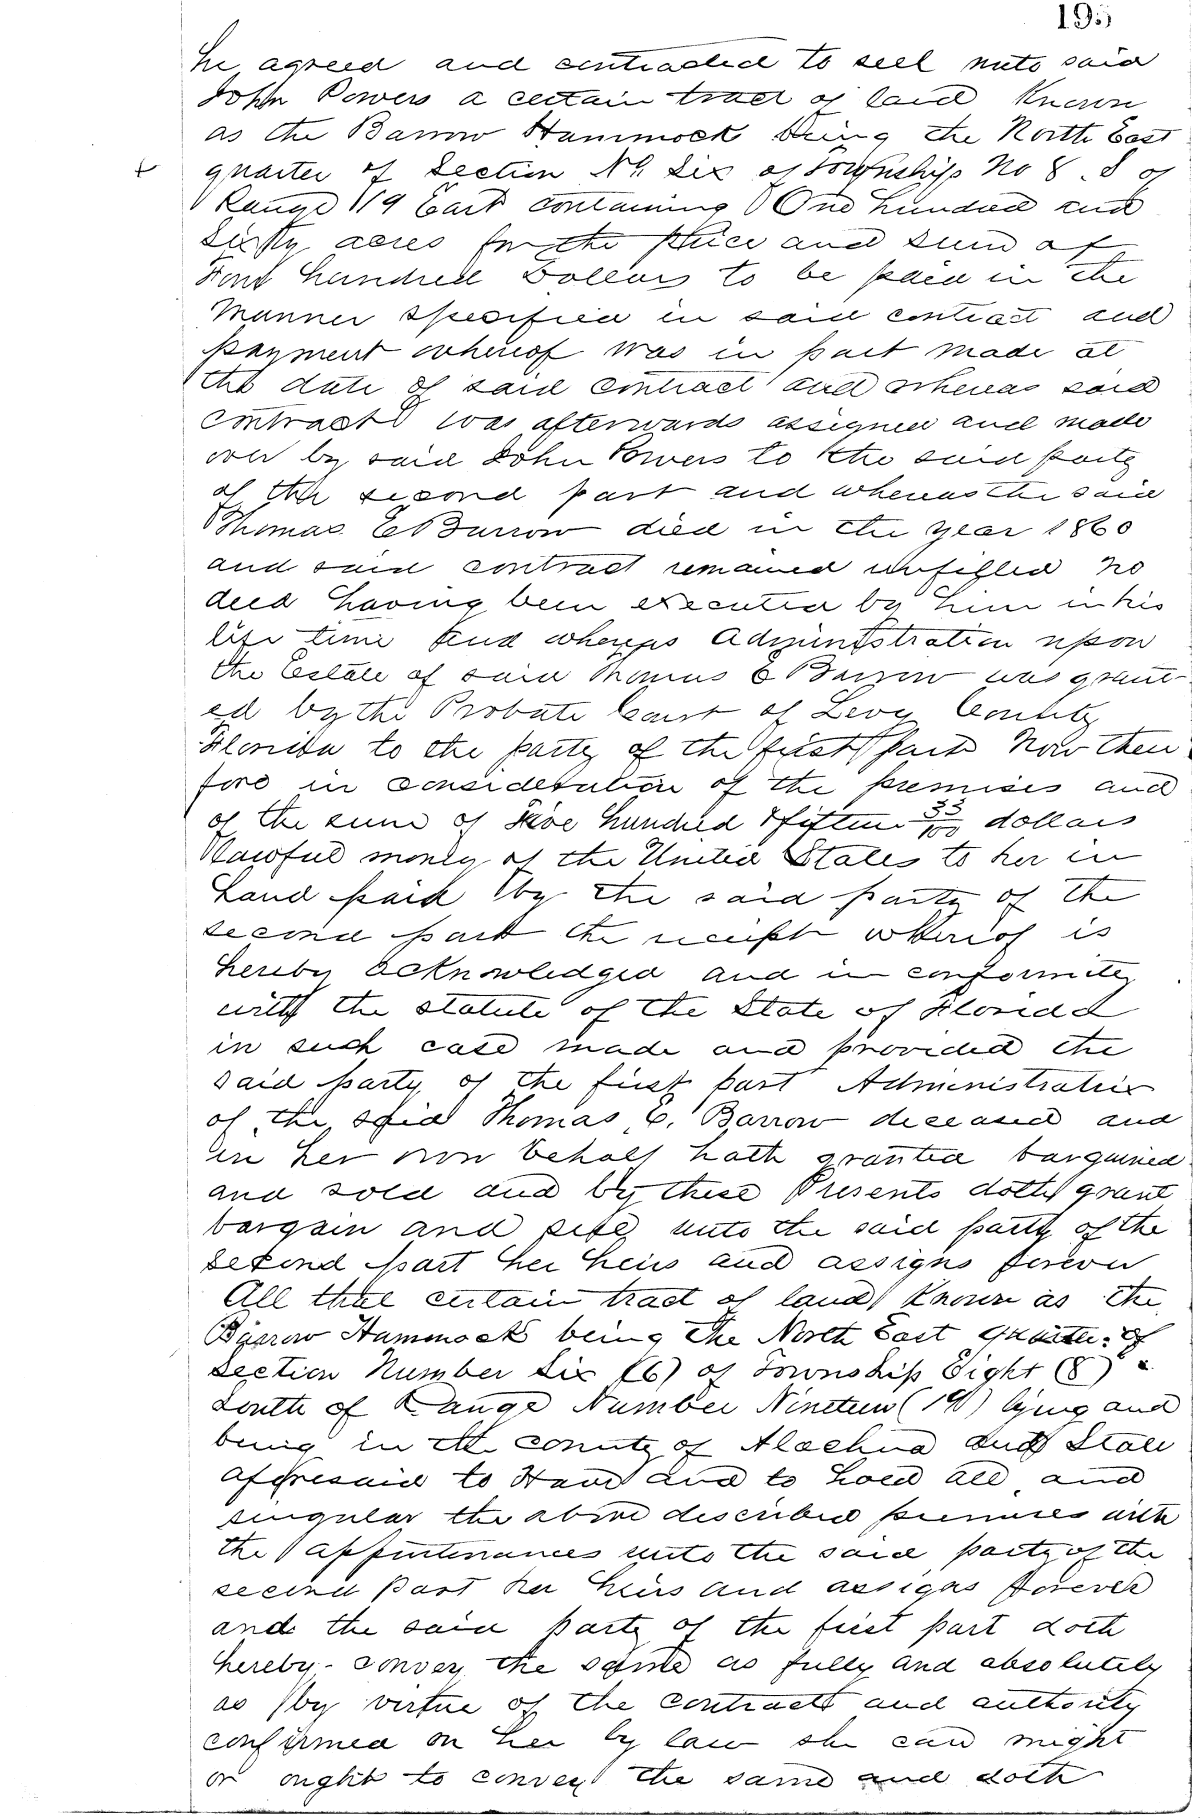 195
he agreed and contracted to sell unto said
John Powers a certain tract of land Known
as the Barrow Hammock being the North East
+ quarter of Section No. Six of Township No 8. S of
Range 19 East containing One hundred and
Sixty acres for the price and sum of
Four hundred Dollars to be paid in the
Manner specified in said contract and
payment whereof was in part made at
the date of said contract and whereas said
contract was afterwards assigned and made
over by said John Powers to the said party
of the second part and whereas the said
Thomas E Barrow died in the year 1860
and said contract remained unfilled no
deed having been executed by him in his
life time and whereas Administration upon
the Estate of said Thomas E Barrow was grant
ed by the Probate Court of Levy County
Florida to the party of the first part Now there
fore in consideration of the premises and
of the sum of Five hundred & fifteen 33/100 dollars
lawful money of the United States to her in
hand paid by the said party of the
second part the receipt whereof is
hereby acknowledged and in conformity
with the statute of the State of Florida
in such case made and provided the
said party of the first part Administratrix
of the said Thomas E. Barrow deceased and
in her own behalf hath granted bargained
and sold and by these Presents doth grant
bargain and sell unto the said party of the
second part her heirs and assigns forever
All that certain tract of land Known as the
Barrow Hammock being the North East quarter of
Section Number Six (6) of Township Eight (8)
South of Range Number Nineteen (19) lying and
being in the county of Alachua and State
aforesaid to Have and to hold all and
singular the above described premises with
the appurtenances unto the said party of the
second part her heirs and assigns forever
and the said party of the first part doth
hereby convey the same as fully and absolutely
as by virtue of the contract and authority
confirmed on her by law she can might
or ought to convey the same and doth